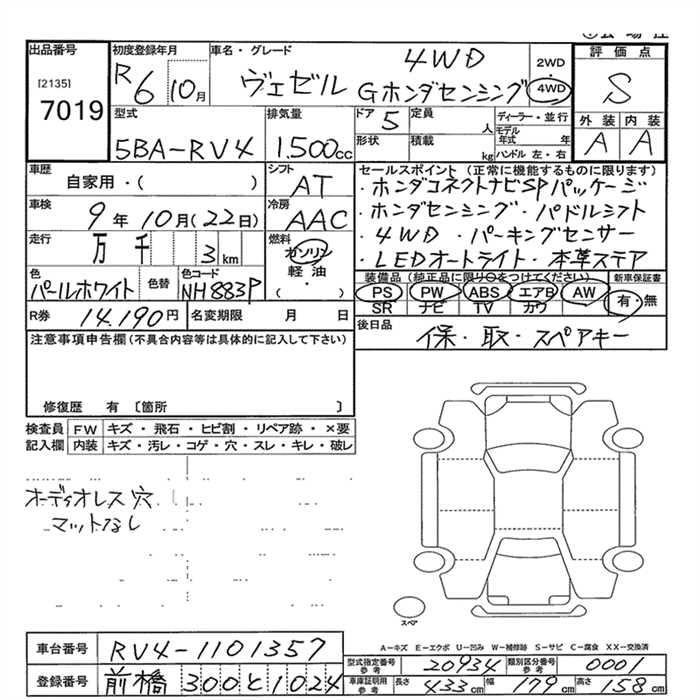 出品番号
[2135]
7019
初度登録年月
R6 10月
車名・グレード
4WD
ヴェゼル Gホンダセンシング
2WD
・
4WD
評価点
S
型式
5BA-RV4
排気量
1.500cc
ドア 5
定員 人
形状
積載 kg
ディーラー・並行
モデル年式 年
ハンドル 左・右
外装 内装
A A
車歴
自家用・( )
シフト
AT
車検
9年10月(22日)
冷房
AAC
走行
万 千 3km
燃料
ガソリン
軽油・
( )
色
パールホワイト
色替
色コード
NH883P
R券 14.190円
名変期限 月 日
セールスポイント(正常に機能するものに限ります)
・ホンダコネクトナビSPパッケージ
・ホンダセンシング・パドルシフト
・4WD・パーキングセンサー
・LEDオートライト・本革ステア
装備品(純正品に限り○をつけてください)
新車保証書
PS PW ABS エアB AW
SR ナビ TV カワ
有・無
後日品
保・取・スペアキー
注意事項申告欄(不具合内容等は具体的に記入して下さい)
修復歴 有 〔箇所 〕
検査員記入欄
FW キズ・飛石・ヒビ割・リペア跡・×要
内装 キズ・汚レ・コゲ・穴・スレ・キレ・破レ
オーディオレス穴
マットなし
スペア
A-キズ E-エクボ U-凹み W-補修跡 S-サビ C-腐食 XX-交換済
車台番号 RV4-1101357
登録番号 前橋 300と1024
型式指定番号 参考 20934
類別区分番号 参考 0001
車庫証明用 参考 長さ 433cm 幅 179cm 高さ 158cm